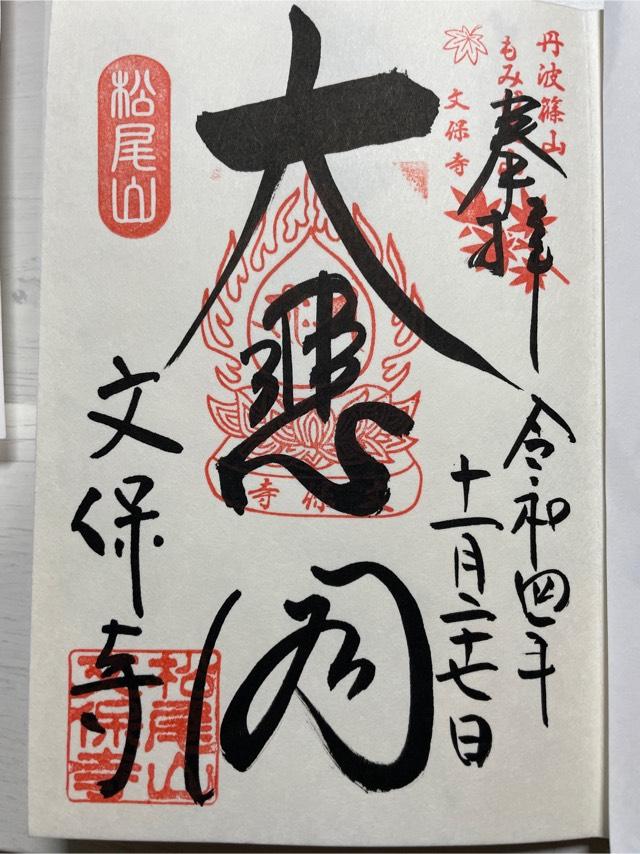 丹波篠山
もみ
文保寺
奉拝
令和四年
十一月二十七日
大悲閣
寺
松尾山
文保寺
松尾山
文保寺